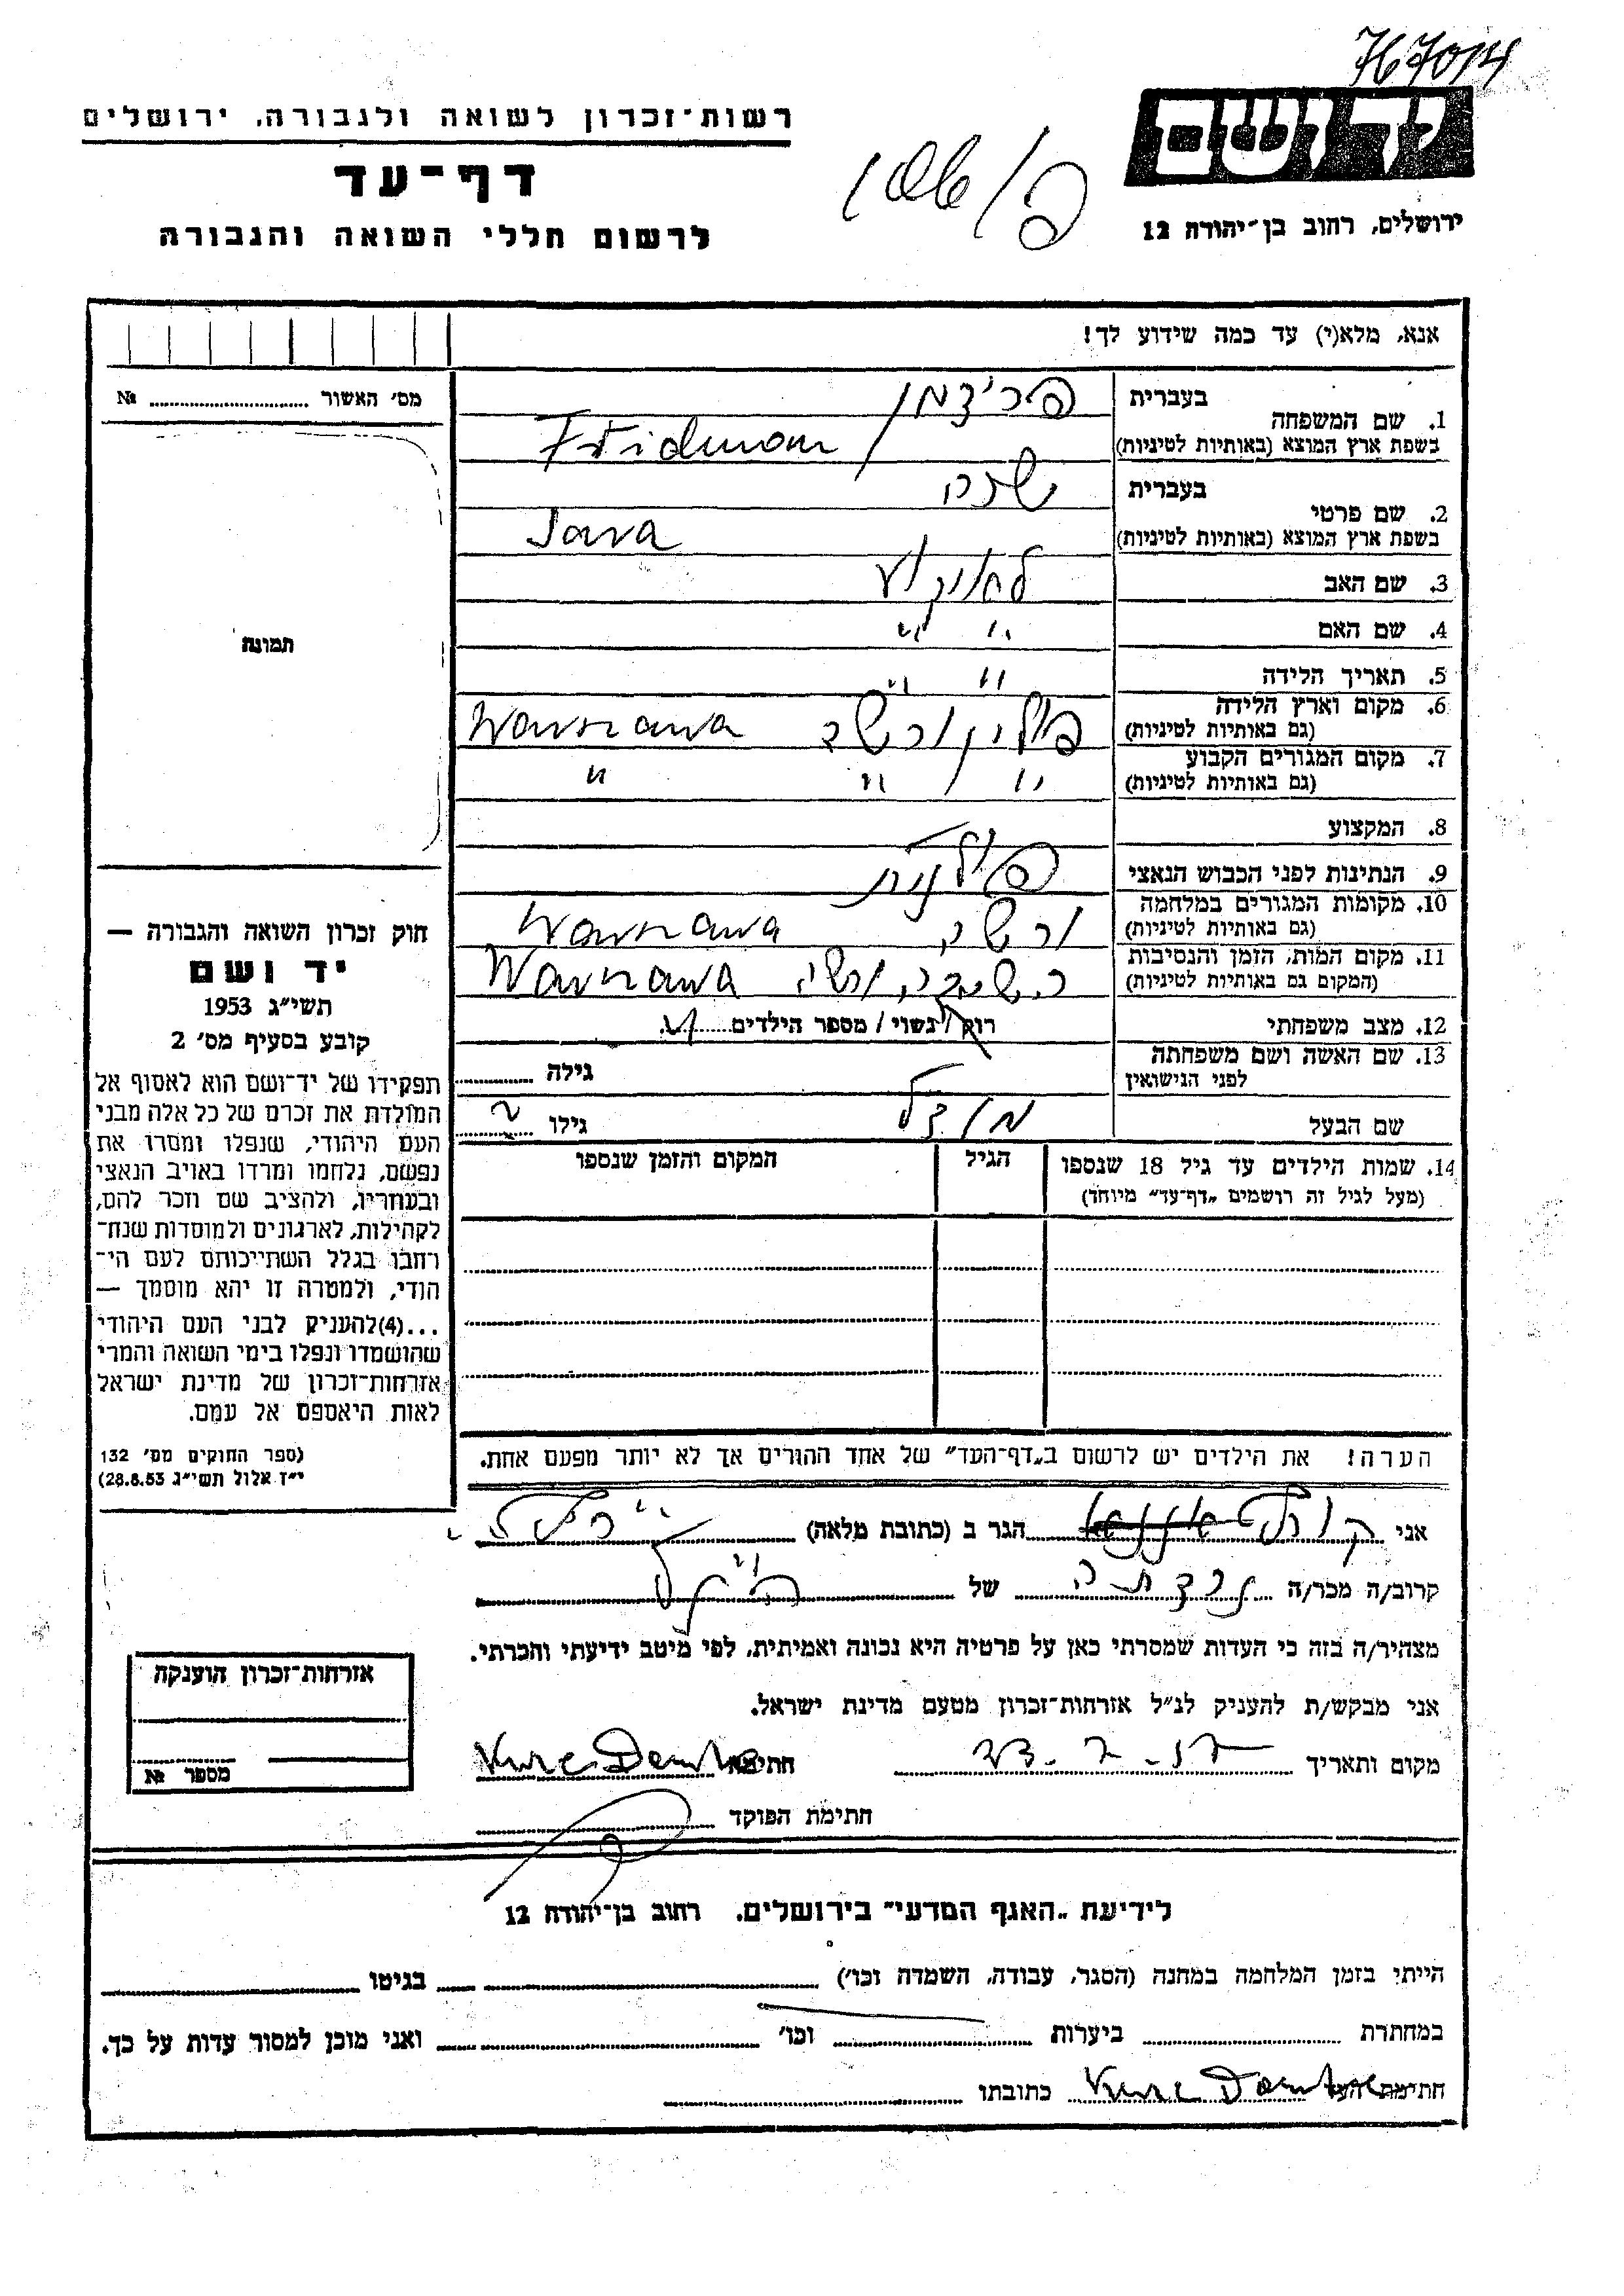 767014
יד ושם
ירושלים, רחוב בן־יהודה 12
רשות־זכרון לשואה ולגבורה, ירושלים
דף־עד
לרשום חללי השואה והגבורה
אנא, מלא(י) עד כמה שידוע לך!
מס׳ האשור № 
תמונה
1. שם המשפחה בעברית פרידמן
בשפת ארץ המוצא (באותיות לטיניות) Fridman
2. שם פרטי בעברית שרה
בשפת ארץ המוצא (באותיות לטיניות) Sara
3. שם האב לא ידוע
4. שם האם " "
5. תאריך הלידה " "
6. מקום וארץ הלידה (גם באותיות לטיניות) פולין ורשה Warszawa
7. מקום המגורים הקבוע (גם באותיות לטיניות) " " "
8. המקצוע
9. הנתינות לפני הכבוש הנאצי פולנית
10. מקומות המגורים במלחמה (גם באותיות לטיניות) ורשה Warszawa
11. מקום המות, הזמן והנסיבות (המקום גם באותיות לטיניות) ורשה Warszawa
12. מצב משפחתי רוק / נשוי / מספר הילדים
13. שם האשה ושם משפחתה לפני הנישואין גילה
שם הבעל גילו
14. שמות הילדים עד גיל 18 שנספו הגיל המקום והזמן שנספו
(מעל לגיל זה רושמים „דף־עד" מיוחד)
הערה! את הילדים יש לרשום ב„דף־העד" של אחד ההורים אך לא יותר מפעם אחת.
חוק זכרון השואה והגבורה —
יד ושם
תשי״ג 1953
קובע בסעיף מס׳ 2
תפקידו של יד־ושם הוא לאסוף אל
המולדת את זכרם של כל אלה מבני
העם היהודי, שנפלו ומסרו את
נפשם, נלחמו ומרדו באויב הנאצי
ובעוזריו, ולהציב שם וזכר להם,
לקהילות, לארגונים ולמוסדות שנח־
רבו בגלל השתייכותם לעם הי־
הודי, ולמטרה זו יהא מוסמך —
...(4)להעניק לבני העם היהודי
שהושמדו ונפלו בימי השואה והמרי
אזרחות־זכרון של מדינת ישראל
לאות היאספם אל עמם.
(ספר החוקים מס׳ 132
י״ז אלול תשי״ג 28.8.53)
אני הגר ב (כתובת מלאה)
קרוב/ה מכר/ה של
מצהיר/ה בזה כי העדות שמסרתי כאן על פרטיה היא נכונה ואמיתית, לפי מיטב ידיעתי והכרתי.
אני מבקש/ת להעניק לנ״ל אזרחות־זכרון מטעם מדינת ישראל.
מקום ותאריך חתימה
חתימת הפוקד
אזרחות־זכרון הוענקה
מספר №
לידיעת „האגף המדעי" בירושלים, רחוב בן־יהודה 12
הייתי בזמן המלחמה במחנה (הסגר, עבודה, השמדה וכו׳) בגיטו
במחתרת ביערות וכו׳ ואני מוכן למסור עדות על כך.
חתימת העד כתובתו